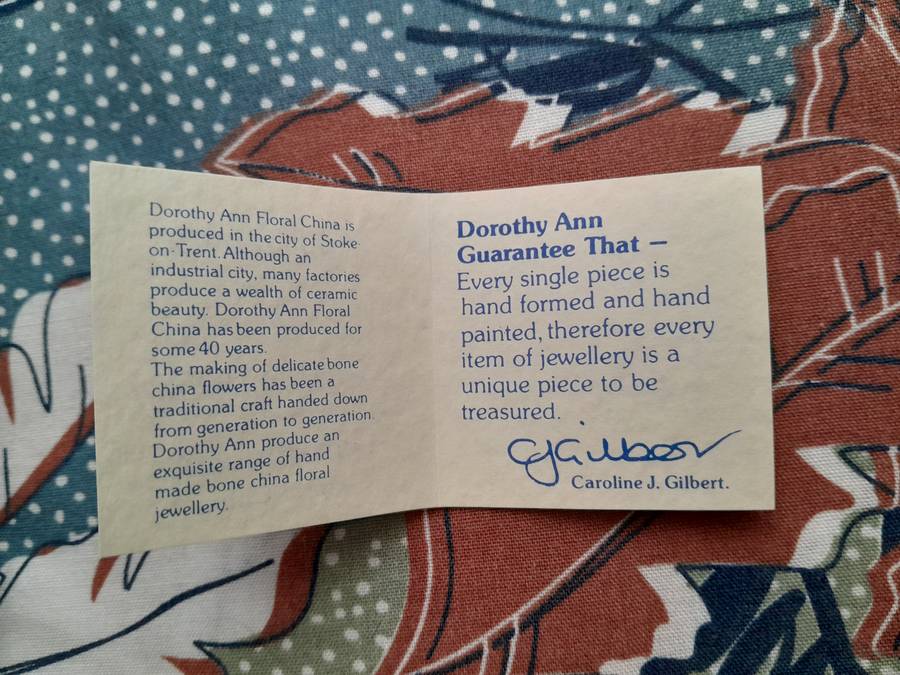 Dorothy Ann Floral China is
produced in the city of Stoke-
on-Trent. Although an
industrial city, many factories
produce a wealth of ceramic
beauty. Dorothy Ann Floral
China has been produced for
some 40 years.
The making of delicate bone
china flowers has been a
traditional craft handed down
from generation to generation.
Dorothy Ann produce an
exquisite range of hand
made bone china floral
jewellery.
Dorothy Ann
Guarantee That –
Every single piece is
hand formed and hand
painted, therefore every
item of jewellery is a
unique piece to be
treasured.
CJGilbert
Caroline J. Gilbert.